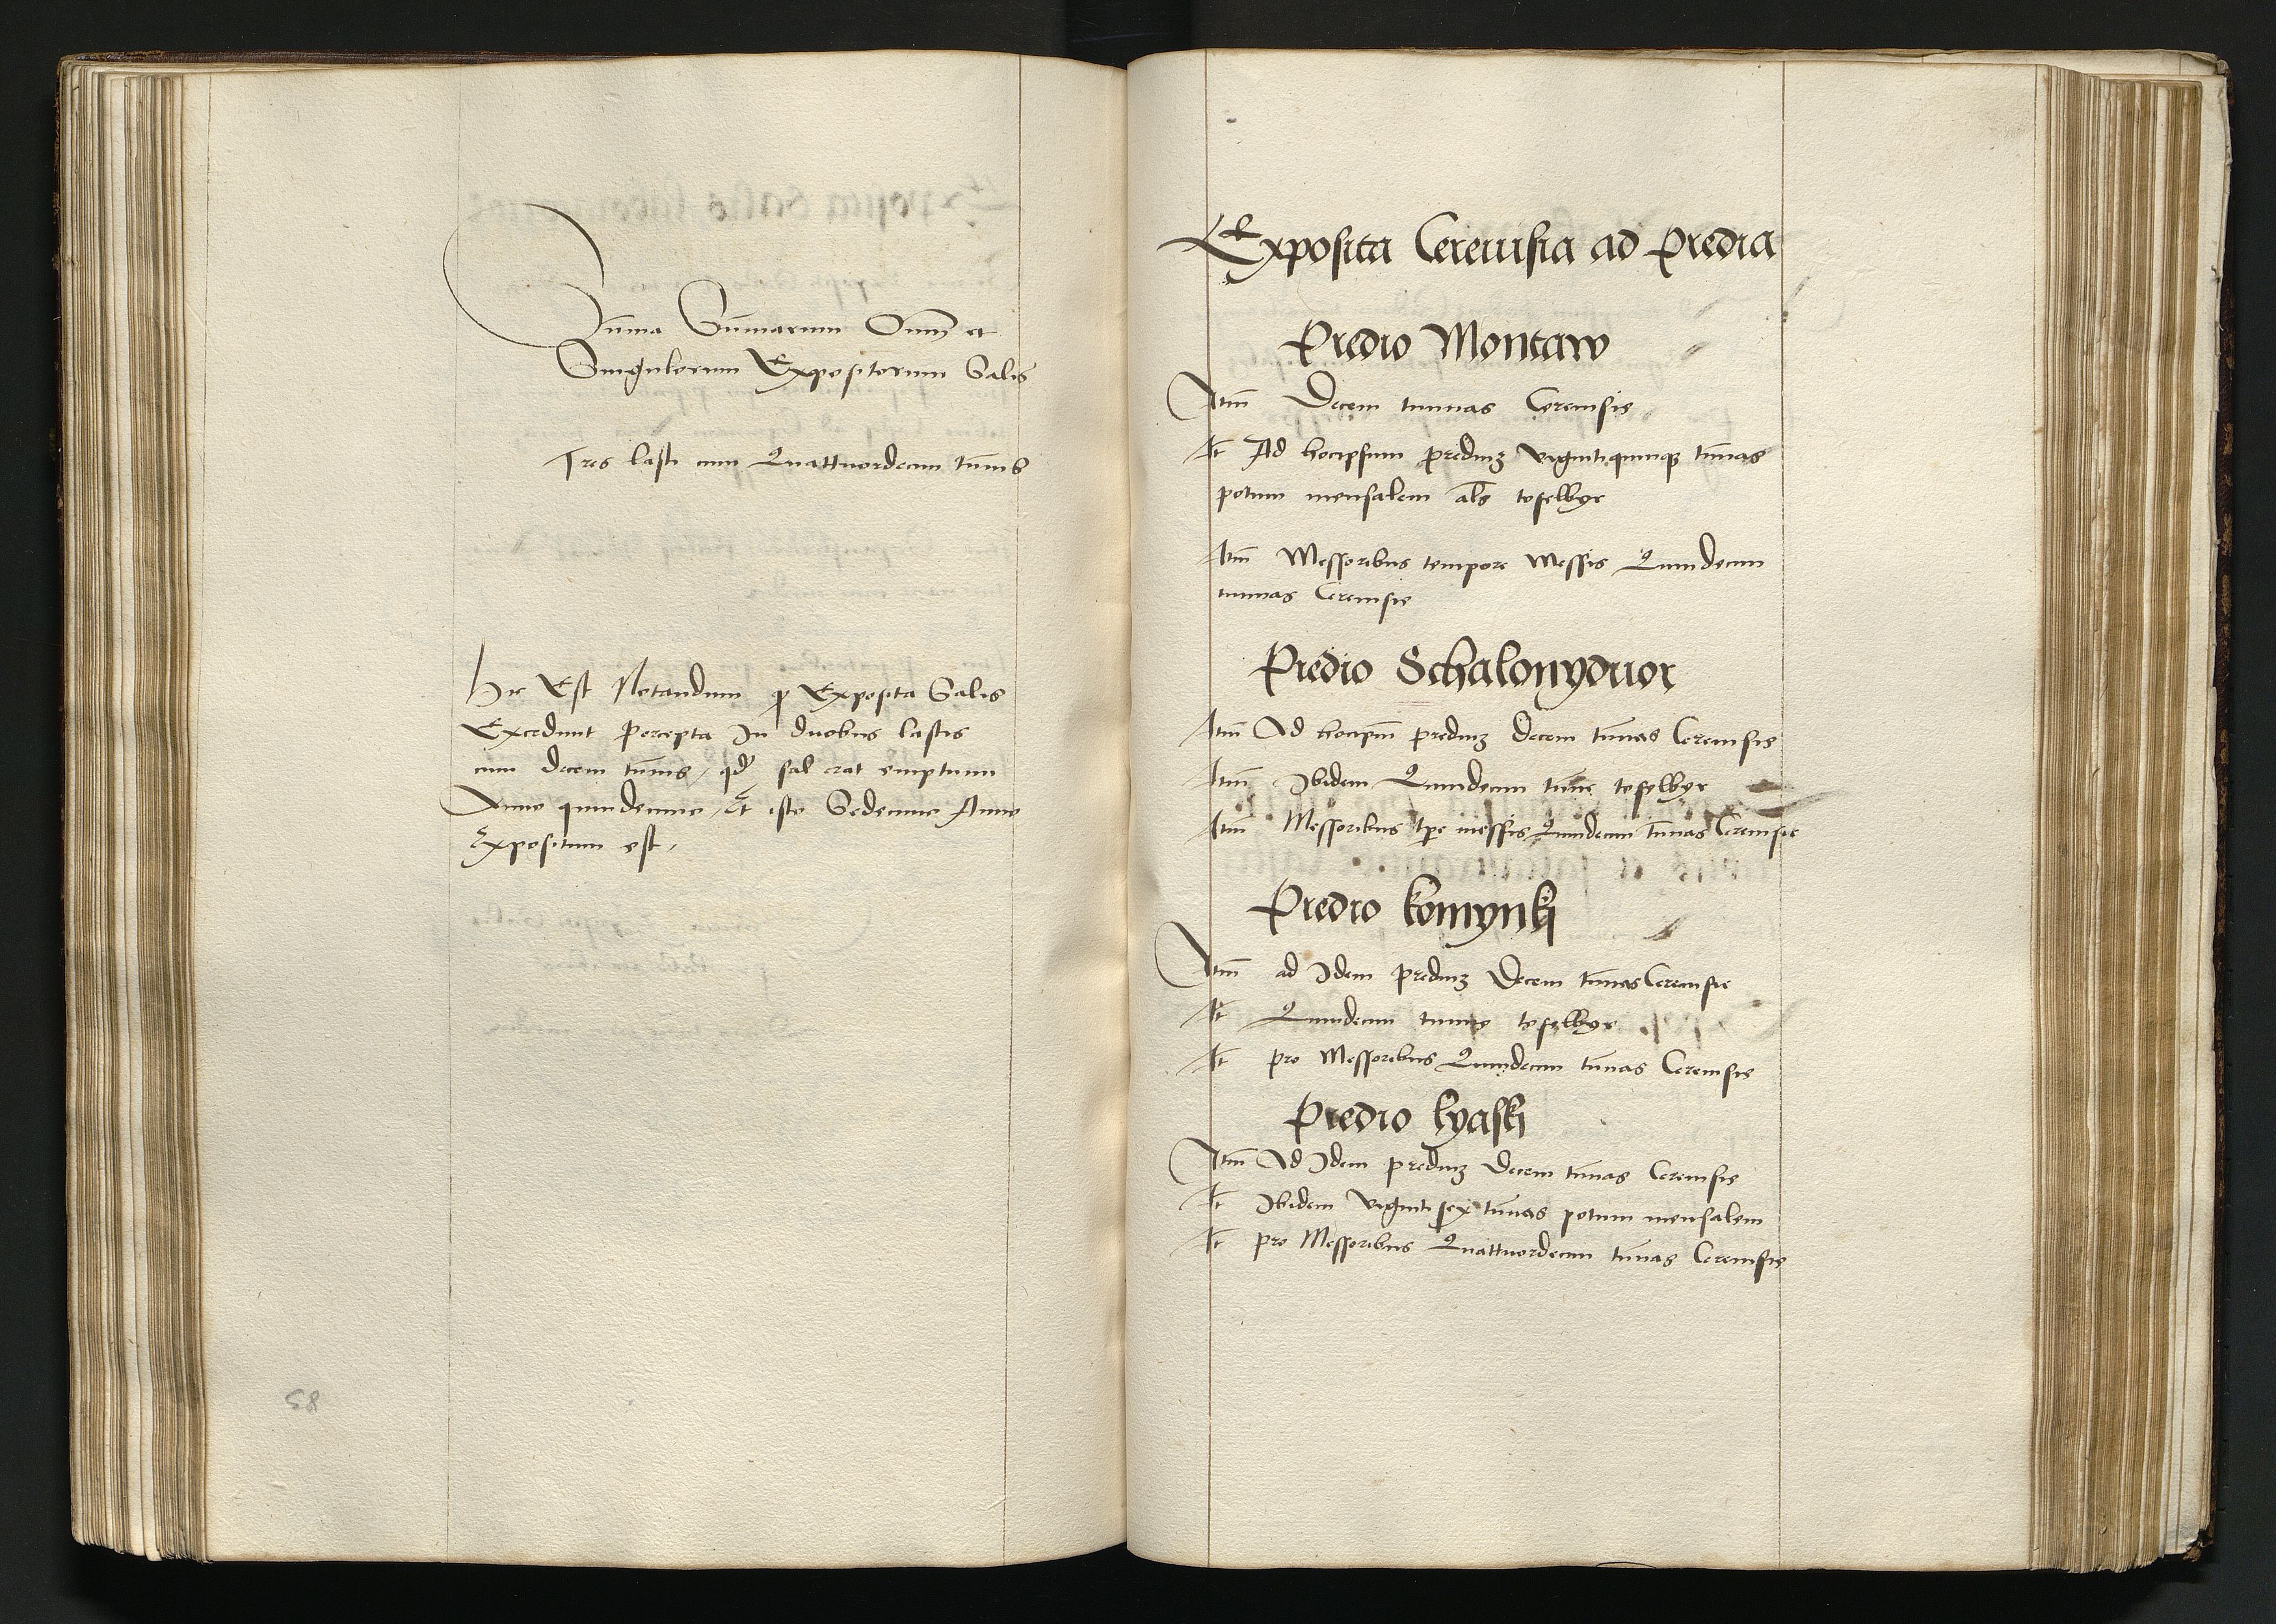 Suma Sumarum Omm et
Singulorum Expositorum Salis
Tres lasti cum Quattuordecim tunis
Hic Est Notandum q Exposita Salis
Excedunt percepta In duobus lastis
cum decem tunis, qd sal erat emptum
Anno quindecimo, Et isto Sedecimo Anno
Expositum est,
58
Exposita Cereuisia ad Predia
Predio Montaw
Itm Decem tunnas Cereuisie
It Ad hocipsum prediuz vigintiquinqz tunas
potum mensalem als tofelbyr
Itm Messoribus tempore Messis Quindecim
tunnas Cereuisie
Predio Schalonyduor
Itm Ad hocipm prediuz Decem tunas Cereuisie
Itm Ibidem Quindecim tune tofelbyr
Itm Messoribus tpe messis Quindecim tunnas Cereuisie
Predio komynki
Itm ad Idem prediuz Decem tunas Cereuisie
It Quindecim tunne tofelbyr
It pro Messoribus Quindecim tunas Cereuisie
Predio lyaski
Itm Ad Idem prediuz Decem tunas Cereuisie
It Ibidem viginti sex tunas potum mensalem
It pro Messoribus Quattuordecim tunas Cereuisie